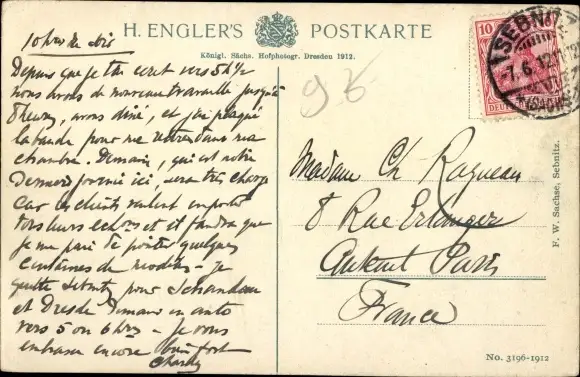 H. ENGLER'S POSTKARTE
Königl. Sächs. Hofphotogr. Dresden 1912.
10 hrs de soir
Depuis que je t'ai écrit vers 5h ½
nous avons de nouveau travaillé jusqu'à
heures, avons diné, et j'ai plaqué
la bande pour me retirer dans ma
chambre. Demain, qui est notre
dernière journée ici, sera très chargé
car les clients veulent emporter
tous leurs et il faudra que
je me de quelques
centaines de modèles - je
quitte Sebnitz pour Schandau
et Dresde Demain en auto
vers 5 ou 6 hrs - Je vous
embrasse encore bien fort
Charly
95
10
SEBNITZ
-7.6.12.
(SACHSEN)
Madame Ch Raqueau
8 Rue Erlanger
Auteuil Paris
France
F. W. Sachse, Sebnitz.
No. 3196-1912